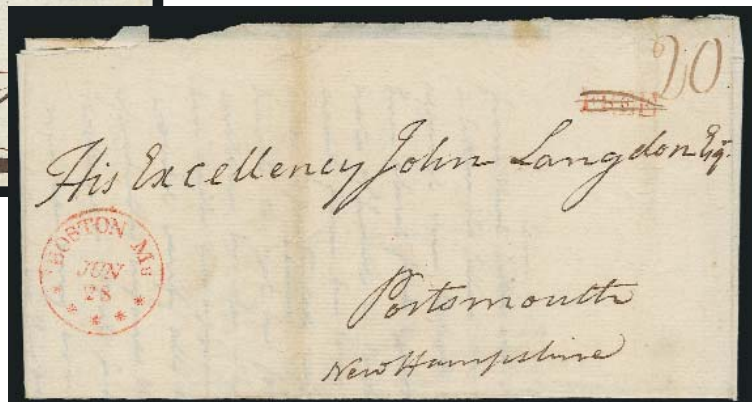 20
FREE
His Excellency John Langdon Esq.
BOSTON Ms
JUN
28
Portsmouth
New Hampshire